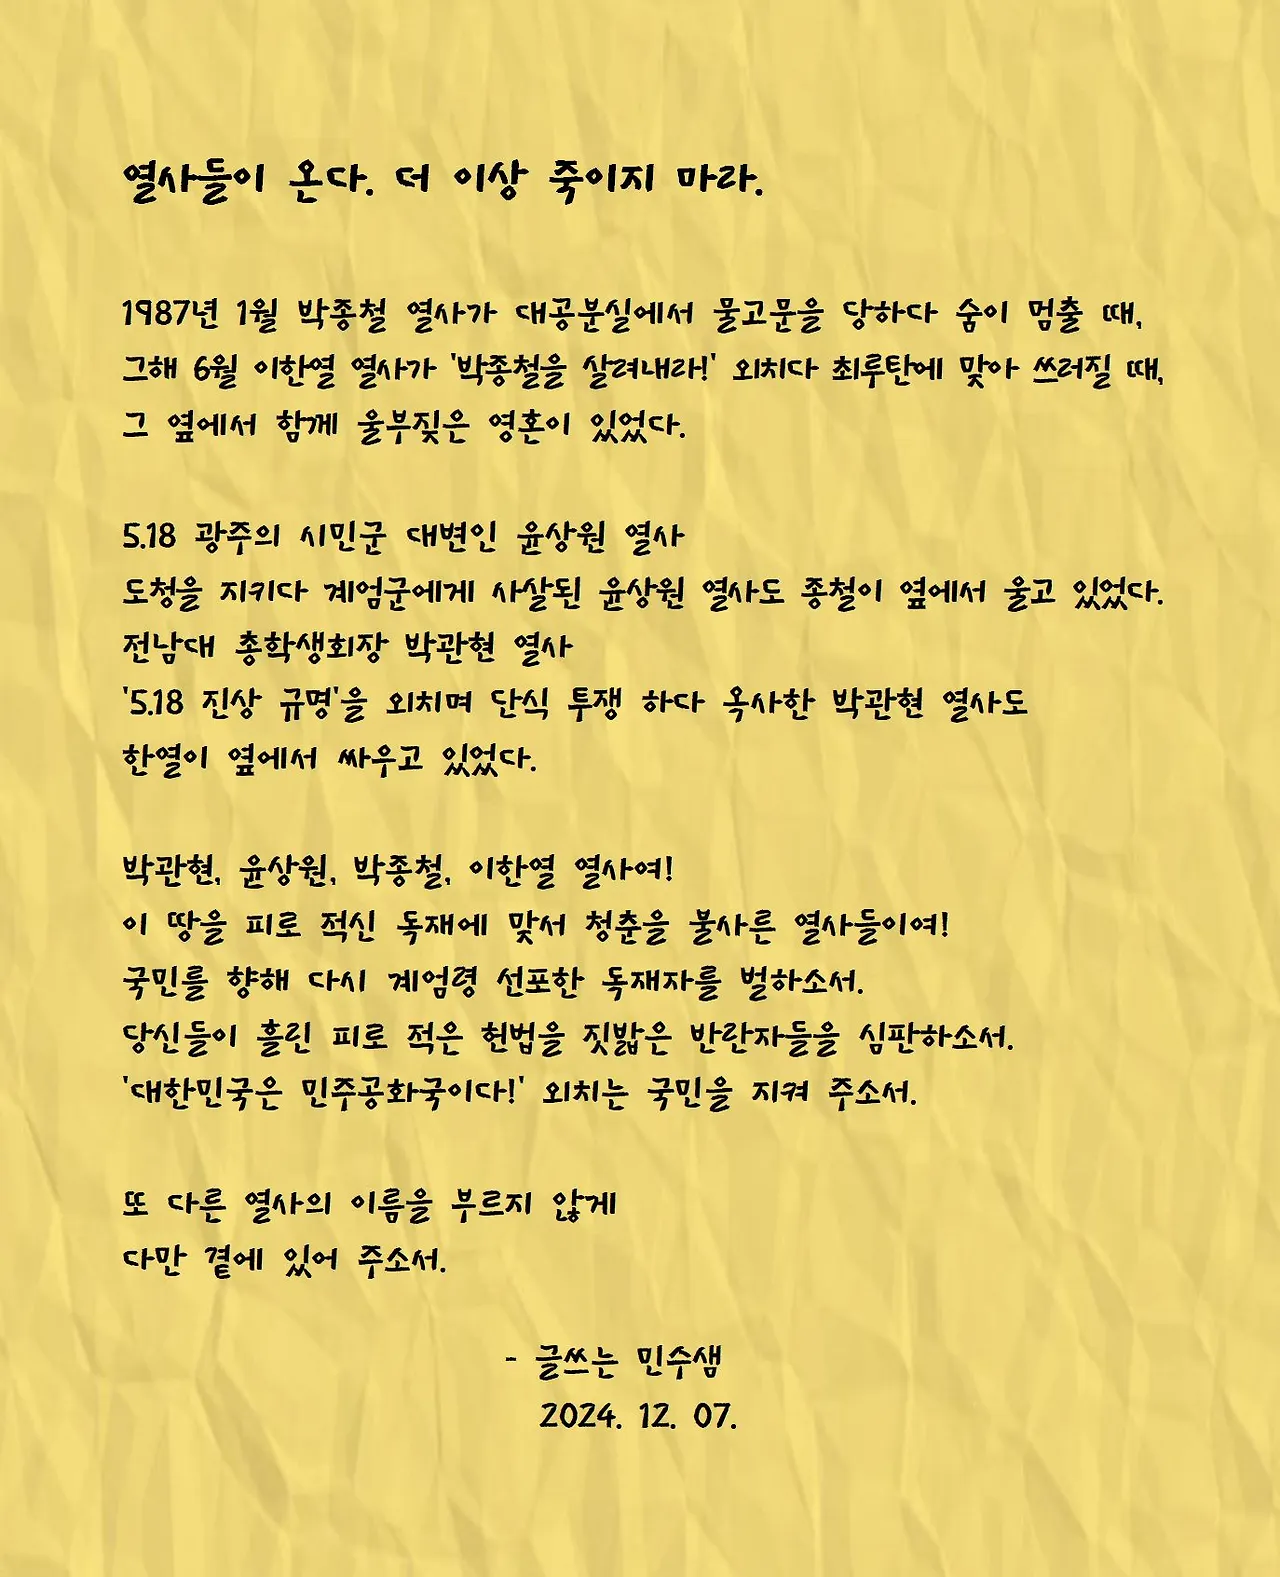 열사들이 온다. 더 이상 죽이지 마라.
1987년 1월 박종철 열사가 대공분실에서 물고문을 당하다 숨이 멈출 때,
그해 6월 이한열 열사가 '박종철을 살려내라!' 외치다 최루탄에 맞아 쓰러질 때,
그 옆에서 함께 울부짖은 영혼이 있었다.
5.18 광주의 시민군 대변인 윤상원 열사
도청을 지키다 계엄군에게 사살된 윤상원 열사도 종철이 옆에서 울고 있었다.
전남대 총학생회장 박관현 열사
'5.18 진상 규명'을 외치며 단식 투쟁 하다 옥사한 박관현 열사도
한열이 옆에서 싸우고 있었다.
박관현, 윤상원, 박종철, 이한열 열사여!
이 땅을 피로 적신 독재에 맞서 청춘을 불사른 열사들이여!
국민를 향해 다시 계엄령 선포한 독재자를 벌하소서.
당신들이 흘린 피로 적은 헌법을 짓밟은 반란자들을 심판하소서.
'대한민국은 민주공화국이다!' 외치는 국민을 지켜 주소서.
또 다른 열사의 이름을 부르지 않게
다만 곁에 있어 주소서.
- 글쓰는 민수샘
2024. 12. 07.